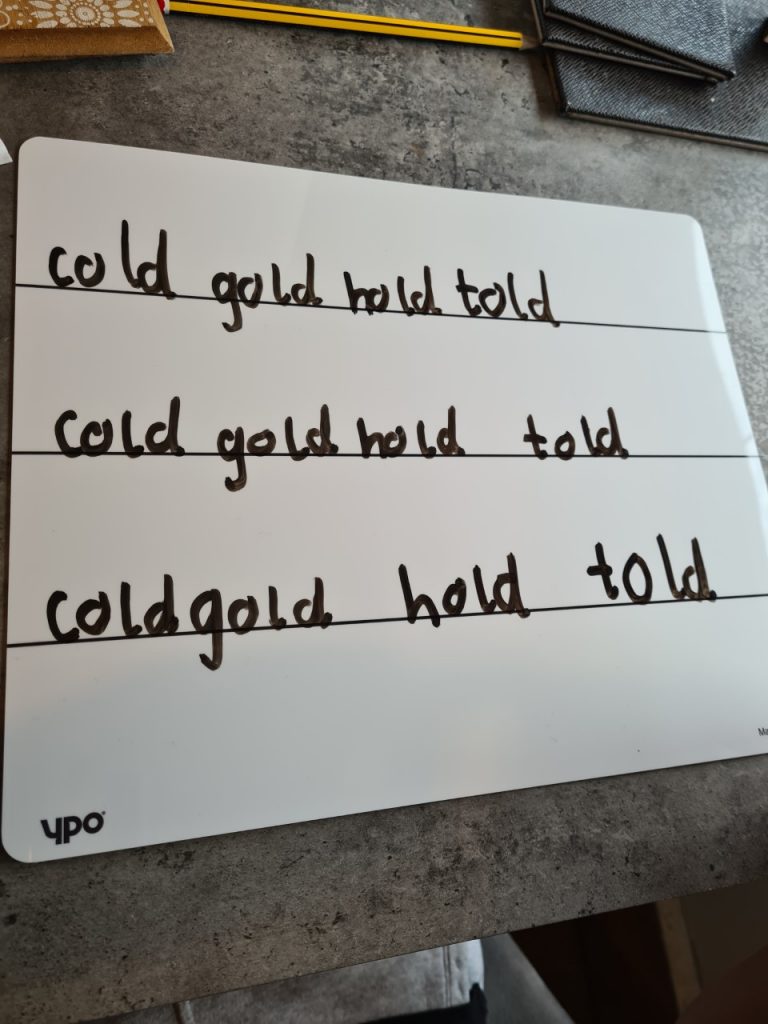 cold gold hold told
cold gold hold told
cold gold hold told
ypo